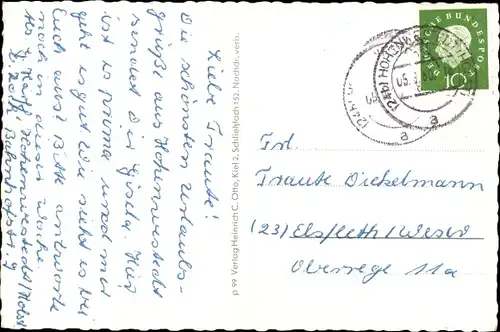 Liebe Traute!
Die schönsten Urlaubs-
grüße aus Hohenwestedt
sendet Dir Gisela. Hier
ist es prima und mir
geht es gut. Wie sieht es bei
Euch aus? Bitte antworte
noch in dieser Woche.
Hohenwestedt/Holst
Bahnhofstr. 9
p 99 Verlag Heinrich C. Otto, Kiel 2, Schließfach 152. Nachdr. verb.
DEUTSCHE BUNDESPOST
10
(24b) HOHENW
a
a
Frl.
Traute Diekelmann
(23) Elsfleth/Weser
Oberrege 11a